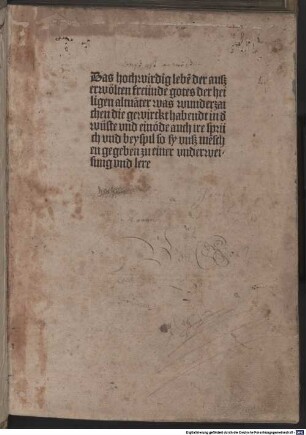 Das hochwirdig lebē der auß
erwölten freünde gotes der hei
ligen altuäter was wunderzai
chen die gewirckt habendt in d
wüste vnd einöde auch ire sprü
ch vnd beyspil so sy vnß mēsch
en gegeben zu einer vnderwei⸗
sung vnd lere
Digitalisierung gefördert durch die Deutsche Forschungsgemeinschaft